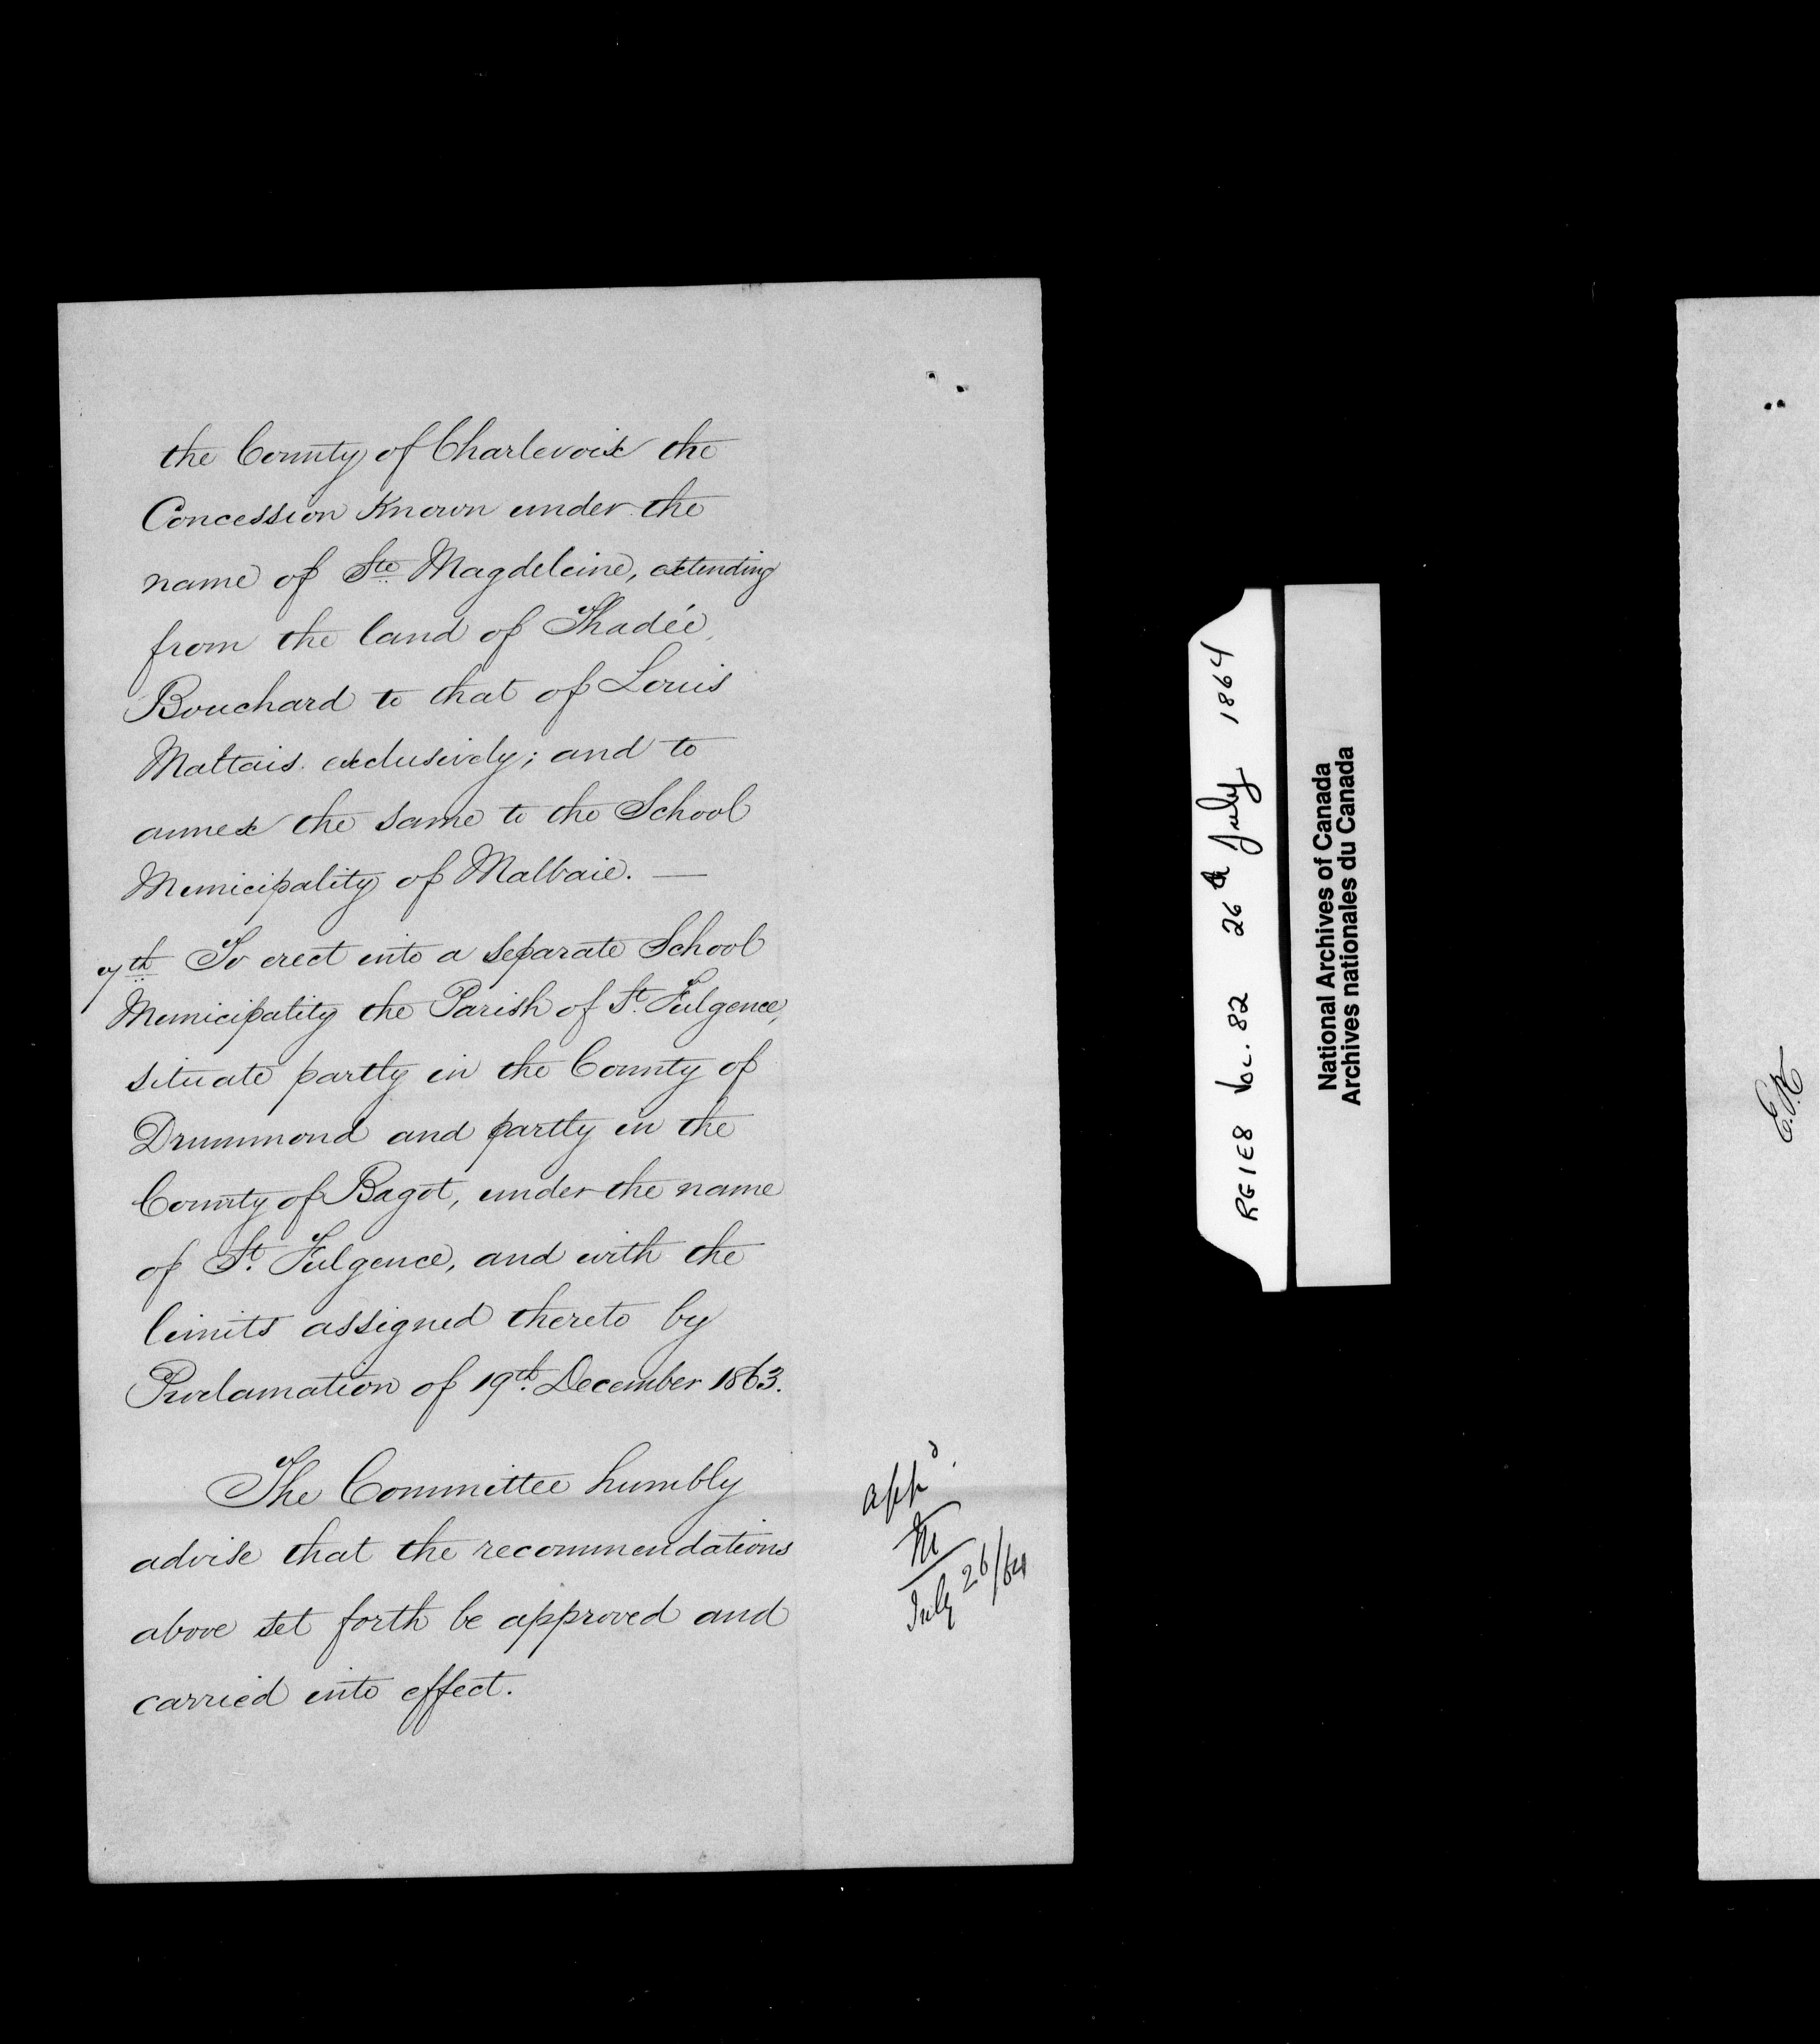 the County of Charlevoix the
Concession Known under the
name of Ste Magdeleine, extending
from the land of Thadée
Bouchard to that of Louis
Maltais exclusively; and to
annex the same to the School
Municipality of Malbaie. —
7th To erect into a separate School
Municipality the Parish of St. Fulgence,
situate partly in the County of
Drummond and partly in the
County of Bagot, under the name
of St. Fulgence, and with the
limits assigned thereto by
Proclamation of 19th. December 1863.
The Committee humbly
advise that the recommendations
above set forth be approved and
carried into effect.
appd.
M
July 26/64
RG1E8 VOL. 82 26th July 1864
National Archives of Canada
Archives nationales du Canada